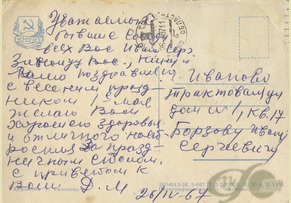 Уважаемые
бывшие
всех Вас Иван Сер.
Зинаиду Вас.,
поздравляю
с весенним празд-
ником 1 мая
желаю Вам
хорошего здоровья
и отличного наст-
роения за празд-
ничным столом.
с приветом к
Вам Д.М
26/IV-67
г. Иваново
Трактовая ул
дом № 1, кв. 17
Борзову Ивану
Сергеевичу